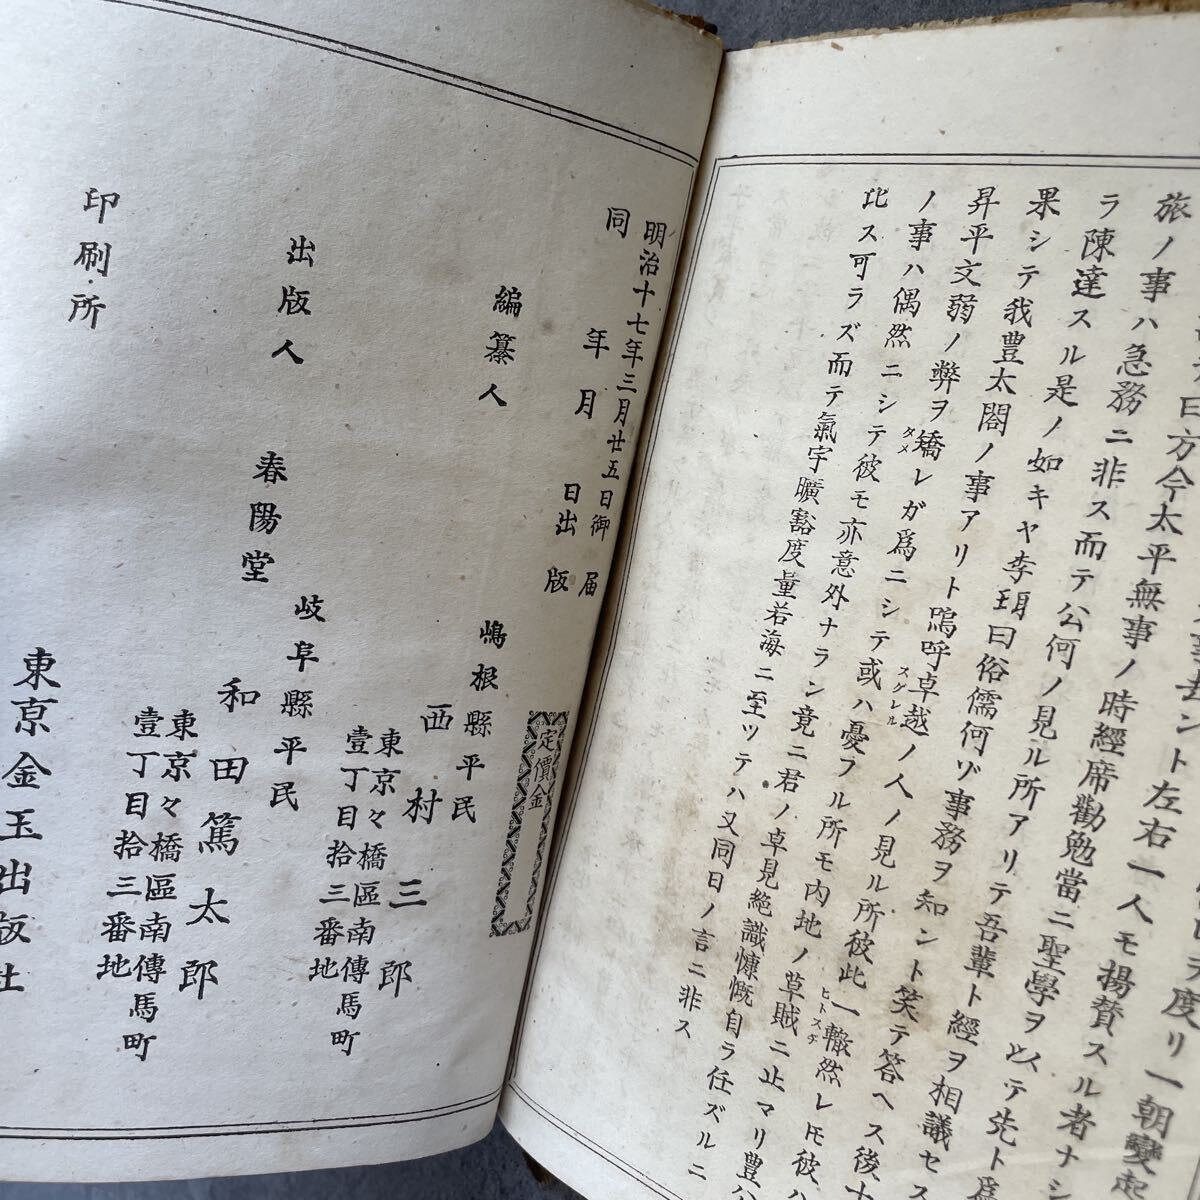 旅ノ事ハ急務ニ非ス而テ公何ノ見ル所アリテ吾輩ト經ヲ相議セス
ラ陳達スル是ノ如キヤ李珥曰俗儒何ゾ事務ヲ知ント笑テ答ヘス後十
果シテ我豊太閤ノ事アリト嗚呼卓越ノ人ノ見ル所彼此一轍然レ𪜈彼ハ
昇平文弱ノ弊ヲ矯レガ爲ニシテ或ハ憂フル所モ内地ノ草賊ニ止マリ豊ハ
ノ事ハ偶然ニシテ彼モ亦意外ナラン竟ニ君ノ卓見絶識慷慨自ラ任ズルニ
比ス可ラズ而テ氣宇曠豁度量若海ニ至ツテハ又同日ノ言ニ非ス
明治十七年三月廿五日御届
同年月日出版
定價金
編纂人
嶋根縣平民
西村三郎
東京々橋區南傳馬町
壹丁目拾三番地
出版人
春陽堂
岐阜縣平民
和田篤太郎
東京々橋區南傳馬町
壹丁目拾三番地
印刷所
東京金玉出版社